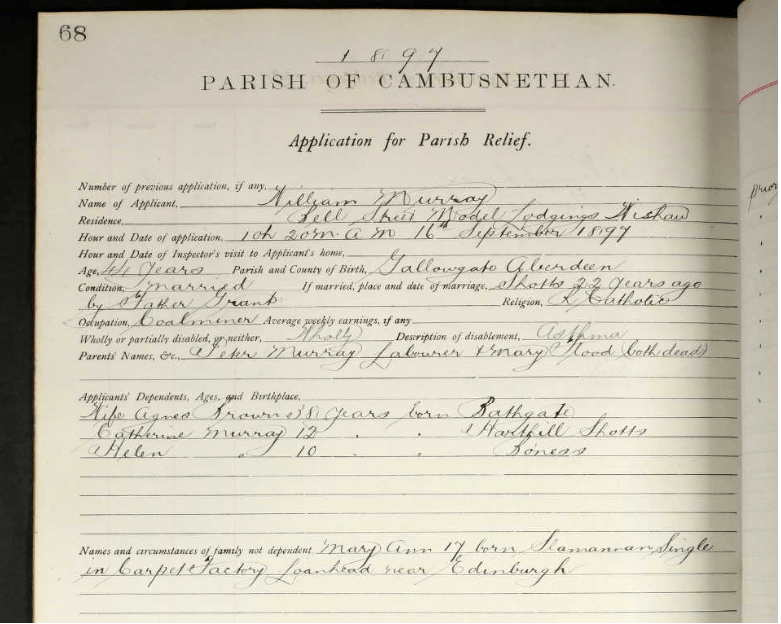 68
1897
PARISH OF CAMBUSNETHAN.
Application for Parish Relief.
Number of previous application, if any,
Name of Applicant, William Murray
Residence, Bell Street Model Lodgings Wishaw
Hour and Date of application. 10h 20m. A M 16th September 1897
Hour and Date of Inspector's visit to Applicant's home,
Age, 44 years Parish and County of Birth, Gallowgate Aberdeen
Condition, Married If married, place and date of marriage, Shotts 22 years ago
by Father Grant Religion, R. Catholic
Occupation, Coalminer Average weekly earnings, if any
Wholly or partially disabled, or neither, Wholly Description of disablement, Asthma
Parents' Names, &c., Peter Murray Labourer & Mary Flood (both dead)
Applicants' Dependents, Ages, and Birthplace,
Wife Agnes Browne 38 years born Bathgate
Catherine Murray 12 . . Harthill Shotts
Helen " 10 . . Boness
Names and circumstances of family not dependent Mary Ann 17 born Slamannan, Single
in Carpet Factory Loanhead near Edinburgh